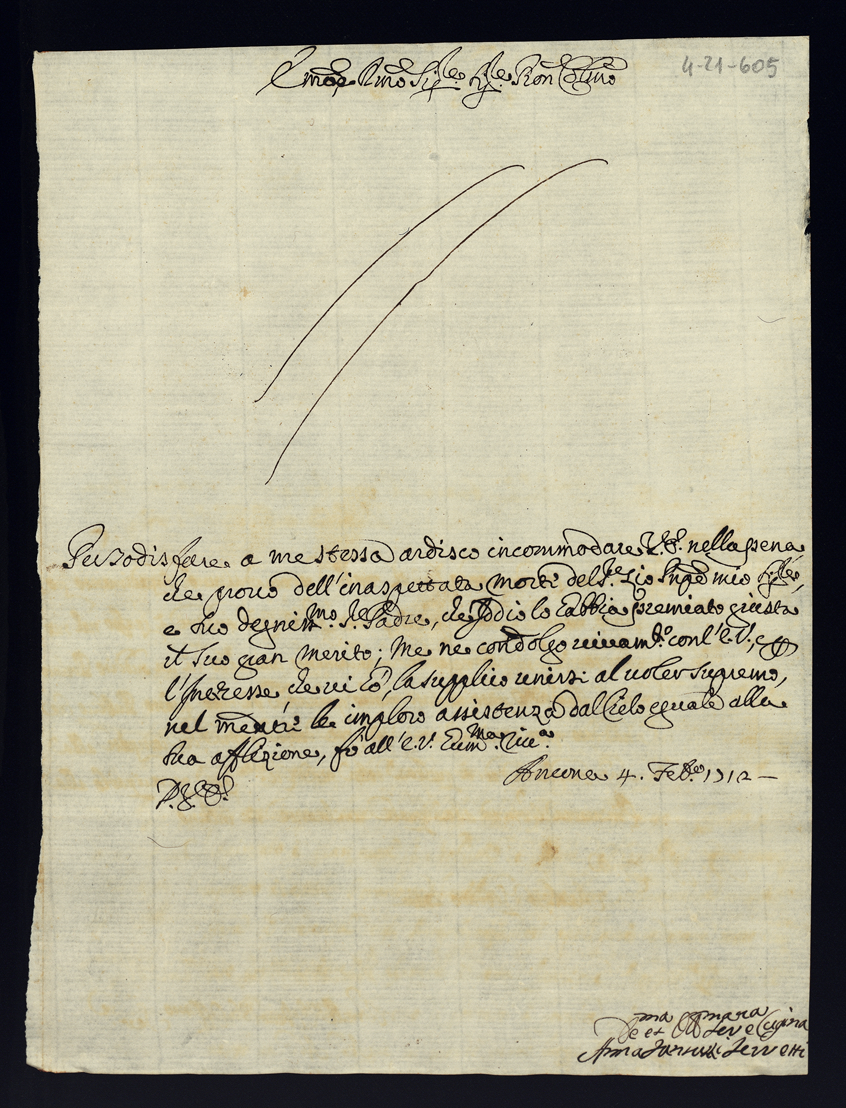 4-21-605
Emo e Rmo Sig.re Sig.re Pron Colmo
Per sodisfare a me stessa ardisco incommodare V.E. nella pena
che provo dell'inaspettata morte del S.re Zio mio Sig.re,
e suo degniss.mo S.r Padre, che Iddio lo habbia premiato giusta
il suo gran merito; Me ne condolgo vivam.te con l'E.V., e
l'Interesse che vi hò, la supplico unirsi al voler supremo,
nel mentre le imploro assistenza dal Cielo eguale alla
sua afflizione, fò all'E.V. hum.ma riv.a
Ancona 4. Feb.ro 1712 —
D. V. E.
Dev.ma et Obb.ma Serv.e Cugina
Anna Ferretti